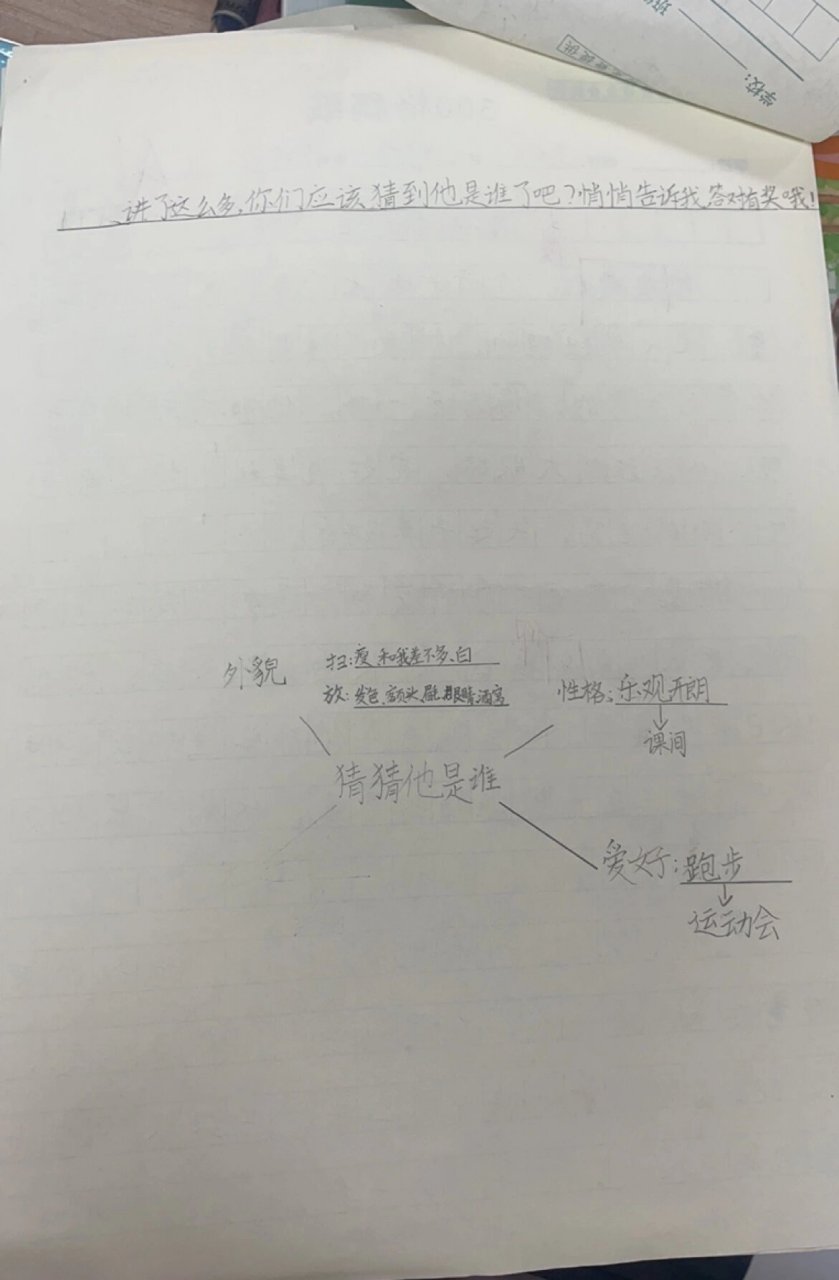 学校:
班
讲了这么多,你们应该猜到他是谁了吧?悄悄告诉我,答对有奖哦!
外貌
扫:瘦、和我差不多、白
放:发色、额头、眼睛、酒窝
性格:乐观开朗
课间
猜猜他是谁
爱好:跑步
运动会